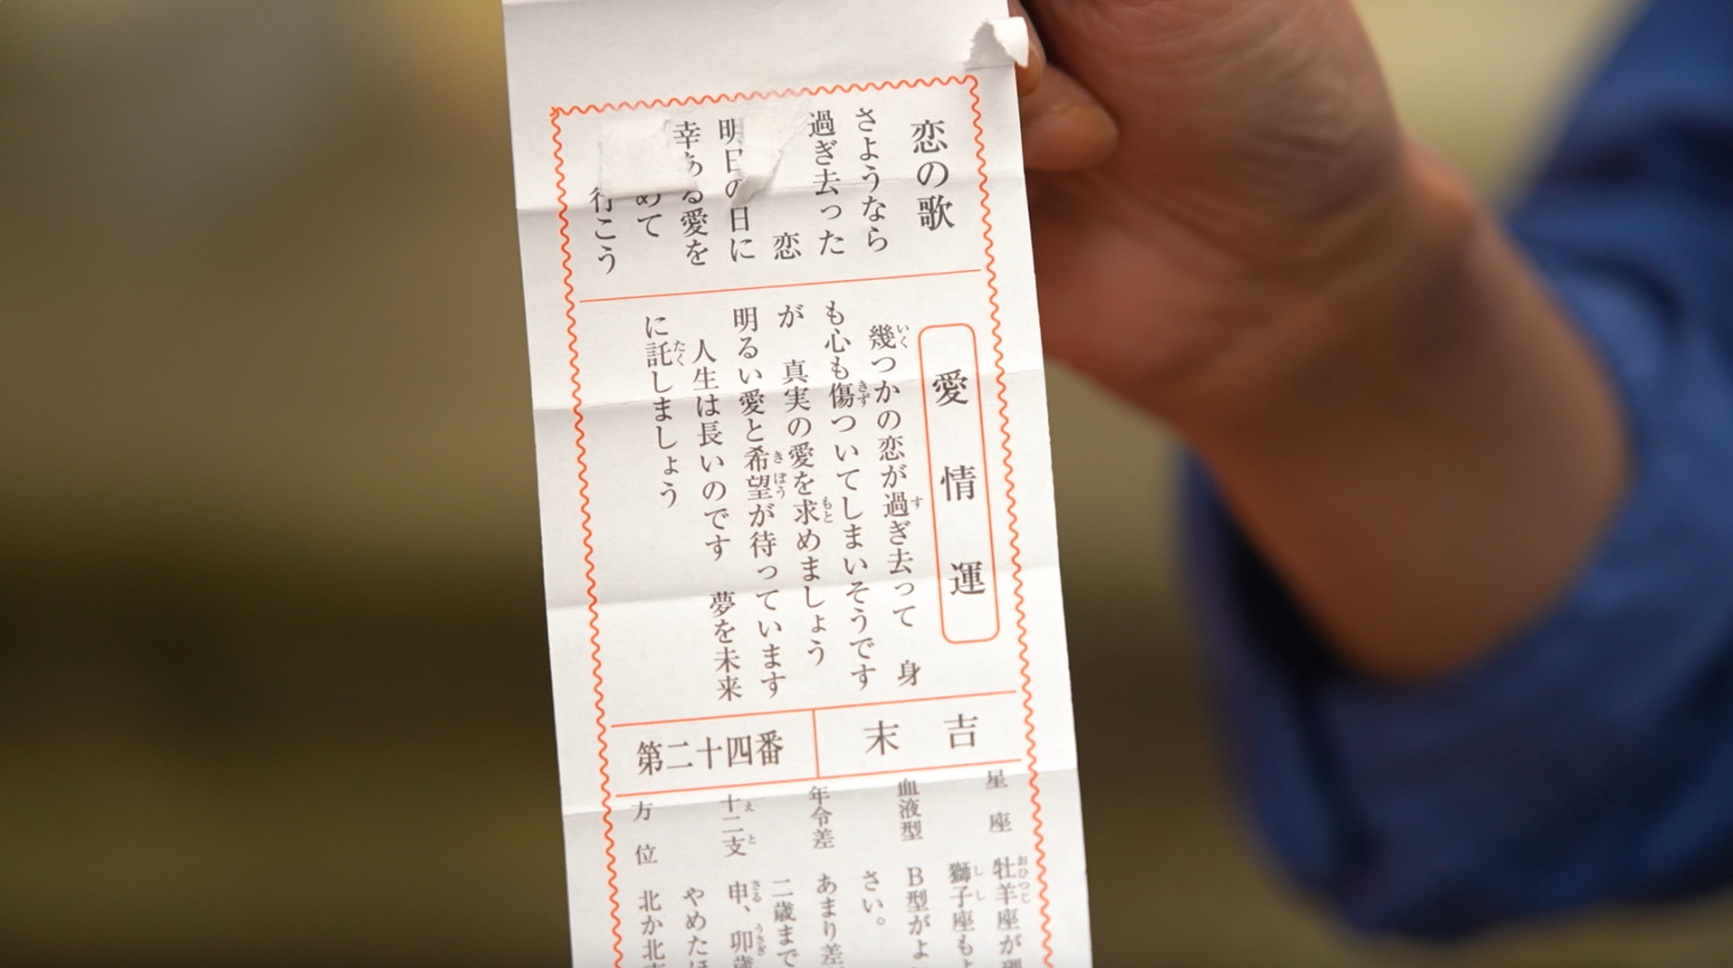 恋の歌
さようなら
過ぎ去った
恋
明日の日に
幸ある愛を
めて
行こう
愛情運
幾つかの恋が過ぎ去って 身
も心も傷ついてしまいそうです
が 真実の愛を求めましょう
明るい愛と希望が待っています
人生は長いのです 夢を未来
に託しましょう
末吉
第二十四番
星座 牡羊座が
獅子座もよ
血液型 B型がよ
さい。
年令差 あまり差
二歳まで
十二支 申、卯歳
やめたほ
方位 北か北